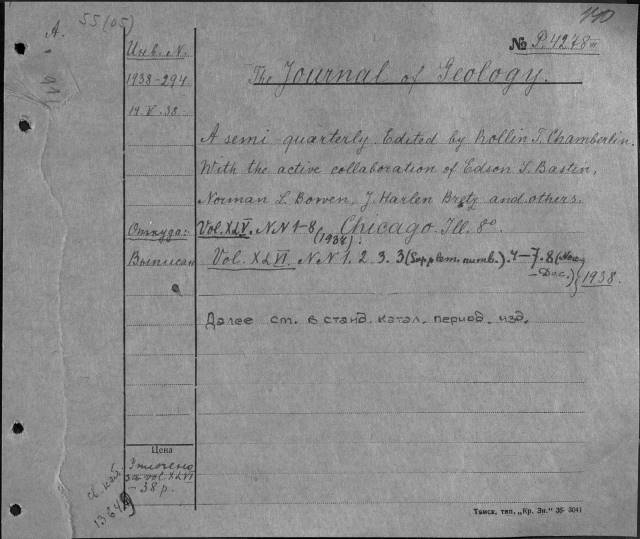 140
А. 55(05)
№ P.4278 III
Инв. N.
1938-294
14.V.38
The Journal of Geology.
A semi-quarterly. Edited by Rollin T. Chamberlin.
With the active collaboration of Edson S. Bastin,
Norman L. Bowen, J. Harlen Bretz and others.
Откуда: Vol. XLV. NN 1-8 (1937). Chicago. Ill. 8°
Выписан Vol. XLVI NN 1. 2. 3. 3 (Supplem. numb.). 4-7. 8 (Nov.
-Dec.) 1938.
Далее см. в станд. катал. период. изд.
Цена
за vol. XLVI
- 38 р.
Томск, тип. „Кр. Зн.“ 36 3041